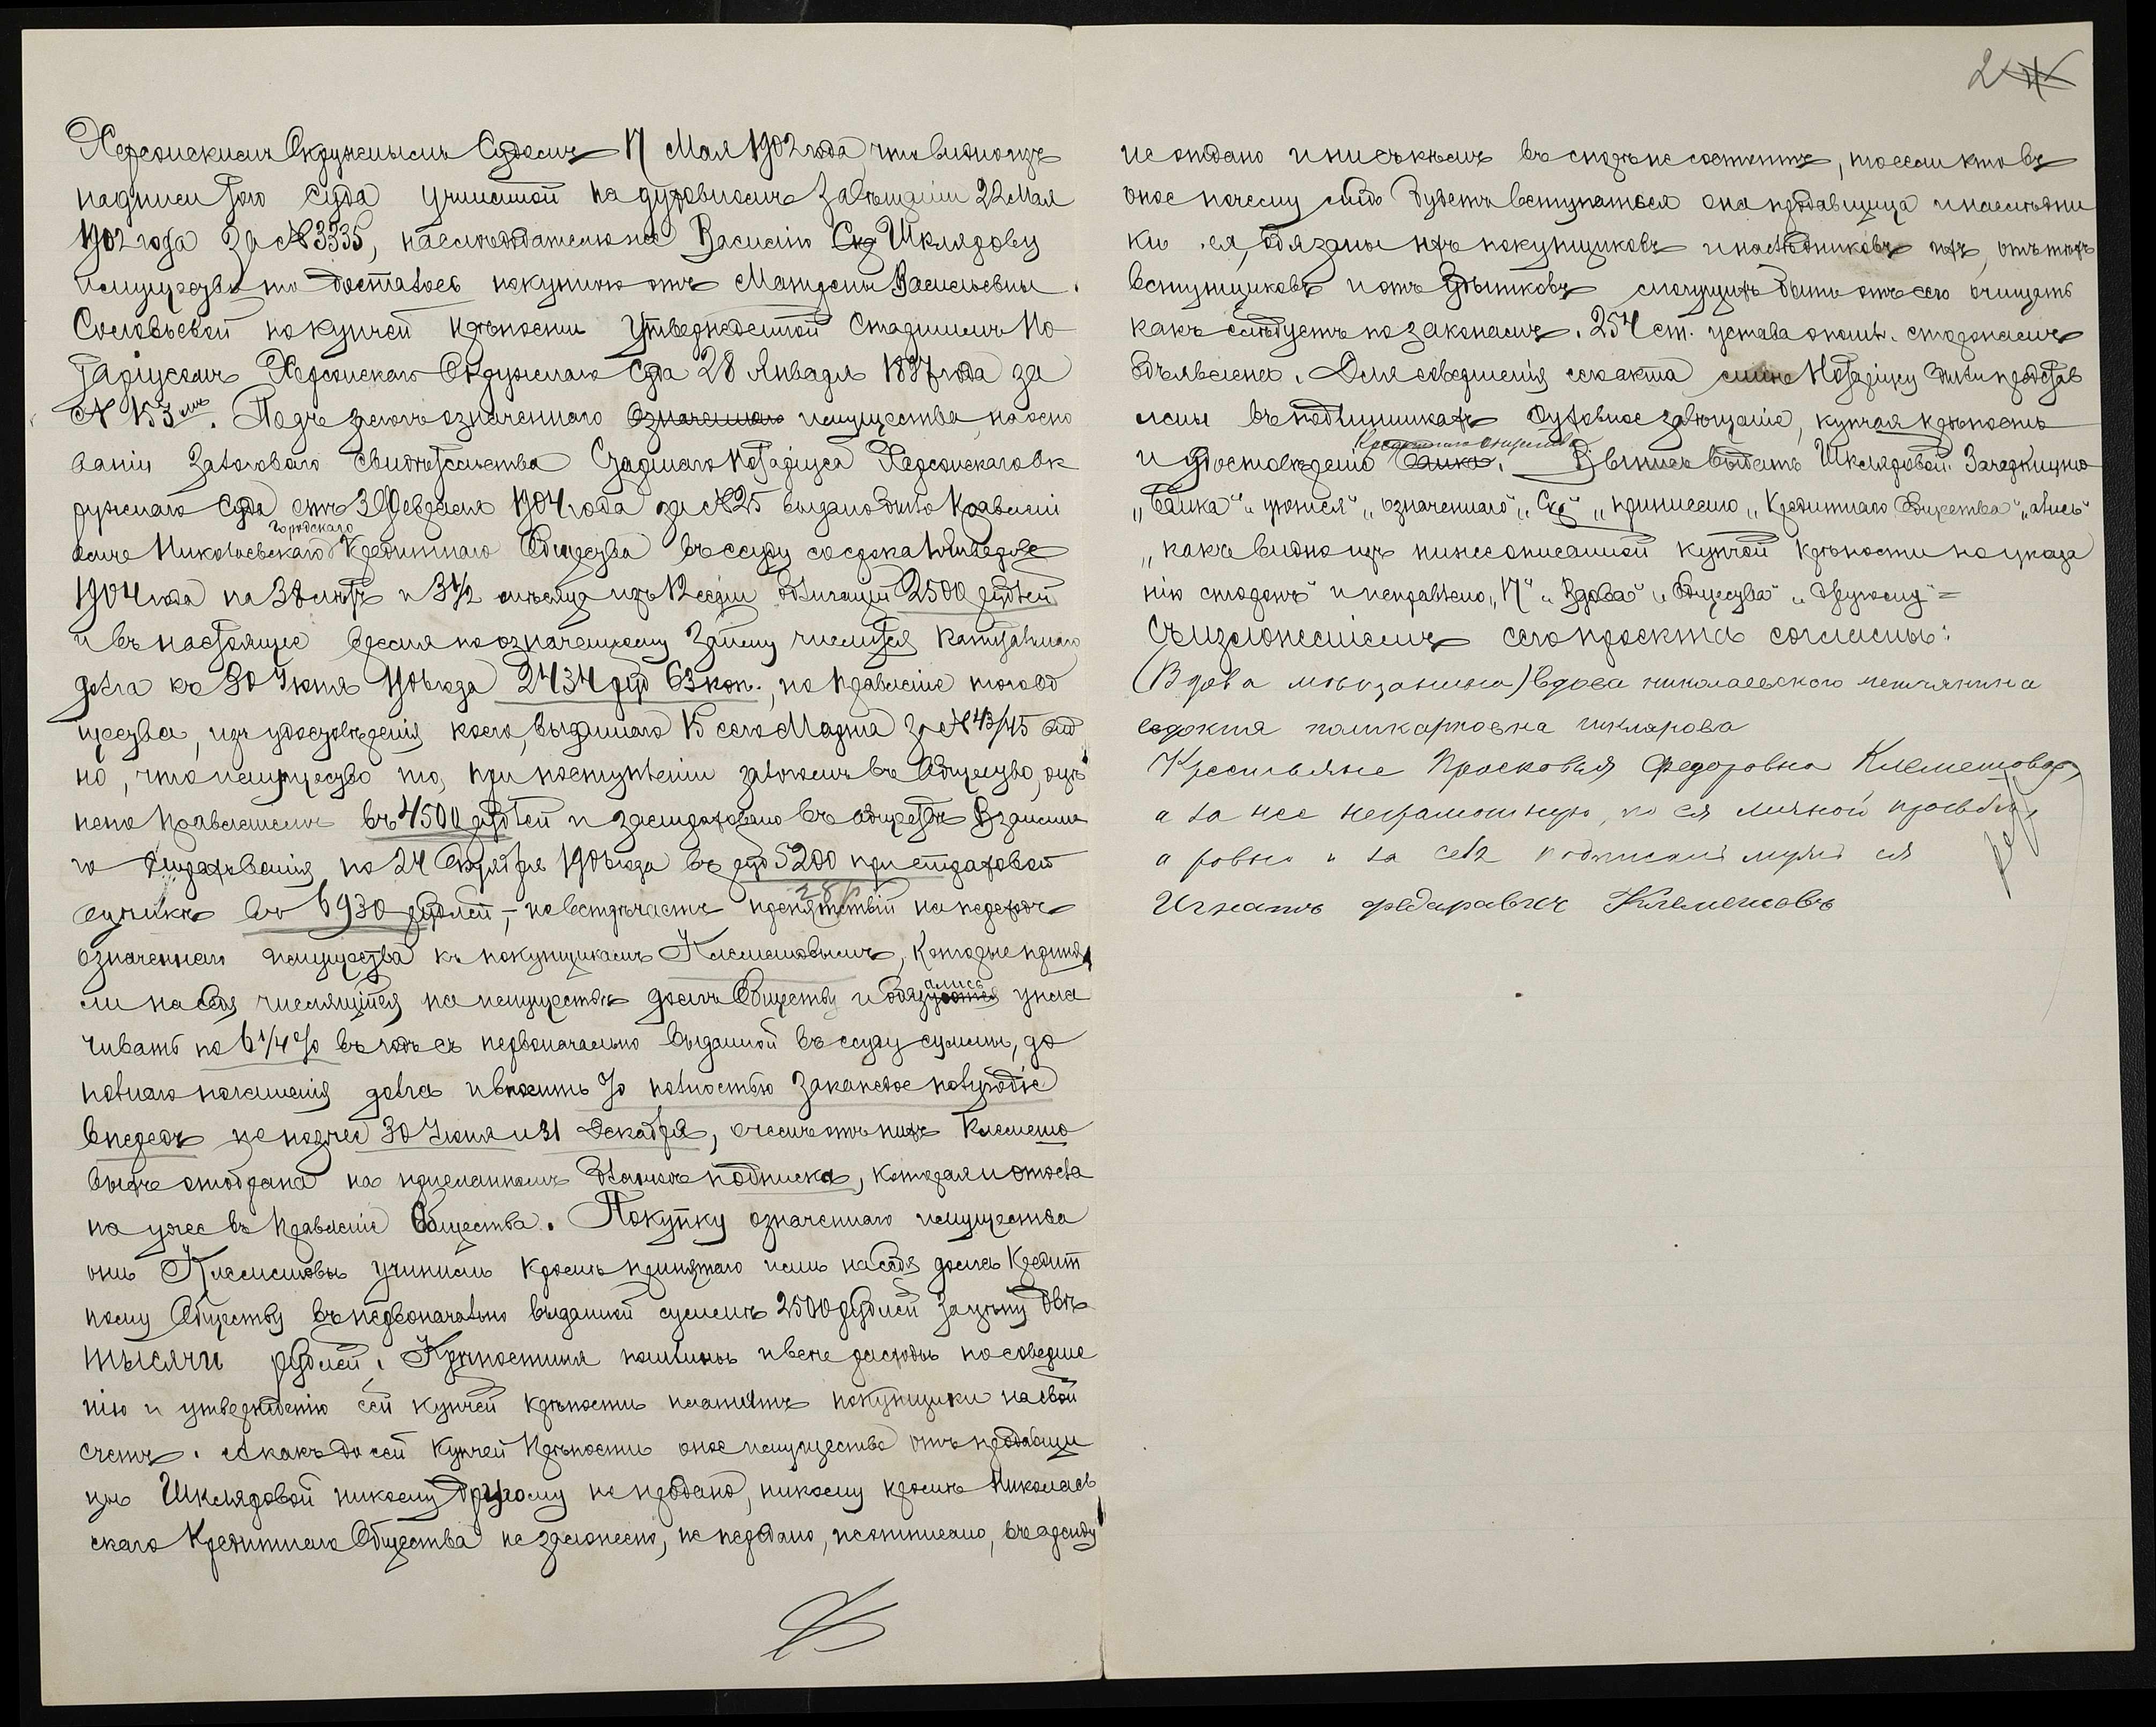 2
Херсонскимъ Окружнымъ Судомъ 17 Мая 1902 года, что видно изъ
надписи того Суда учиненной на духовномъ завѣщаніи 22 Мая
1902 года за № 3335, наслѣдодателю же Василію Ск Шклярову
имущество то досталось покупкою отъ Матрены Васильевны
Соловьевой по купчей крѣпости утвержденной Старшимъ Но
таріусомъ Херсонскаго Окружнаго Суда 28 Января 1897 года за
№ 153мъ. Подъ залогъ означеннаго означеннаго имущества, на осно
ваніи Залоговаго Свидѣтельства Старшаго Нотаріуса Херсонскаго Ок
ружнаго Суда отъ 3 Февраля 1904 года за № 25 выдано было Правлені
емъ Николаевскаго Городскаго Кредитнаго Общества въ ссуду со срока 1 Января
1904 года на 38 лѣтъ и 3½ мѣсяца изъ 12 серіи облигацій 2500 рублей
и въ настоящее время по означенному займу числится капитальнаго
долга къ 30 Іюня 1906 года 2434 руб 63 коп., но Правленіе того Об
щества, изъ удостовѣренія коего, выданнаго 15 сего Марта за № 43/45 вид
но, что имущество то, при поступленіи залогомъ въ Общество, оцѣ
нено Правленіемъ въ 4500 рублей и застраховано въ обществѣ Взаимна
го Страхованія по 24 Октября 1906 года въ руб 5200 при страховой
оцѣнкѣ въ 6930 рублей, – не встрѣчаетъ препятствій на переходъ
означеннаго имущества къ покупщикамъ Клеменовымъ, которые приня
ли на себя числящійся на имуществѣ долгъ Обществу и обязуются ались упла
чивать по 6¼% въ годъ съ первоначально выданной въ ссуду суммы, до
полнаго погашенія долга и вносить % полностью за каждое полугодіе
впередъ не позже 30 Іюня и 31 Декабря, о чемъ отъ нихъ Клемено
выхъ отобрана на присланномъ бланкѣ подписка, которая и отосла
на уже въ Правленіе Общества. Покупку означеннаго имущества
они Клеменовы учинили кромѣ принятаго ими на себя долга Кредит
ному Обществу въ первоначально выданной суммѣ 2500 рублей за цѣну двѣ
тысячи рублей. Крѣпостныя пошлины и всѣ расходы по соверше
нію и утвержденію сей купчей крѣпости платитъ покупщики на свой
счетъ. А какъ до сей купчей крѣпости оное имущество отъ продавщи
цы Шкляровой никому другому не продано, никому кромѣ Николаев
скаго Кредитнаго Общества не заложено, не передано, не отписано, въ аренду
не отдано и ни съ кѣмъ въ спорѣ не состоитъ, то если кто въ
оное почему либо будетъ вступаться она продавщица и наслѣдни
ки ея, обязаны ихъ покупщиковъ и наслѣдниковъ ихъ, отъ тѣхъ
вступщиковъ и отъ убытковъ могущихъ быть отъ сего очищать
какъ слѣдуетъ по законамъ. 254 ст. устава о пошл. сторонамъ
объявлена. Для совершенія сего акта мнѣ Нотаріусу были представ
лены въ подлинникахъ духовное завѣщаніе, купчая крѣпость
и удостовѣреніе Банка. Кредитнаго Общества Выпись выдать Шкляровой. Зачеркнуто
„Банка" „уются" „означеннаго" „Ск" „ приписано „Кредитнаго Общества" „ались"
„какъ видно изъ нижеописанной купчей крѣпости по указа
нію сторонъ" и исправлено „17" „Вдова" „Общества" „другому" =
Съ изложеніемъ сего проекта согласны:
вдова николаевского мещанина
евдокия поликарповна шклярова
Крестьяне Просковья Федоровна Клеменова,
а за нее неграмотную, по ея личной просьбѣ,
а ровно и за себя подписалъ мужъ ея
Игнатъ федаравич Клеменовъ